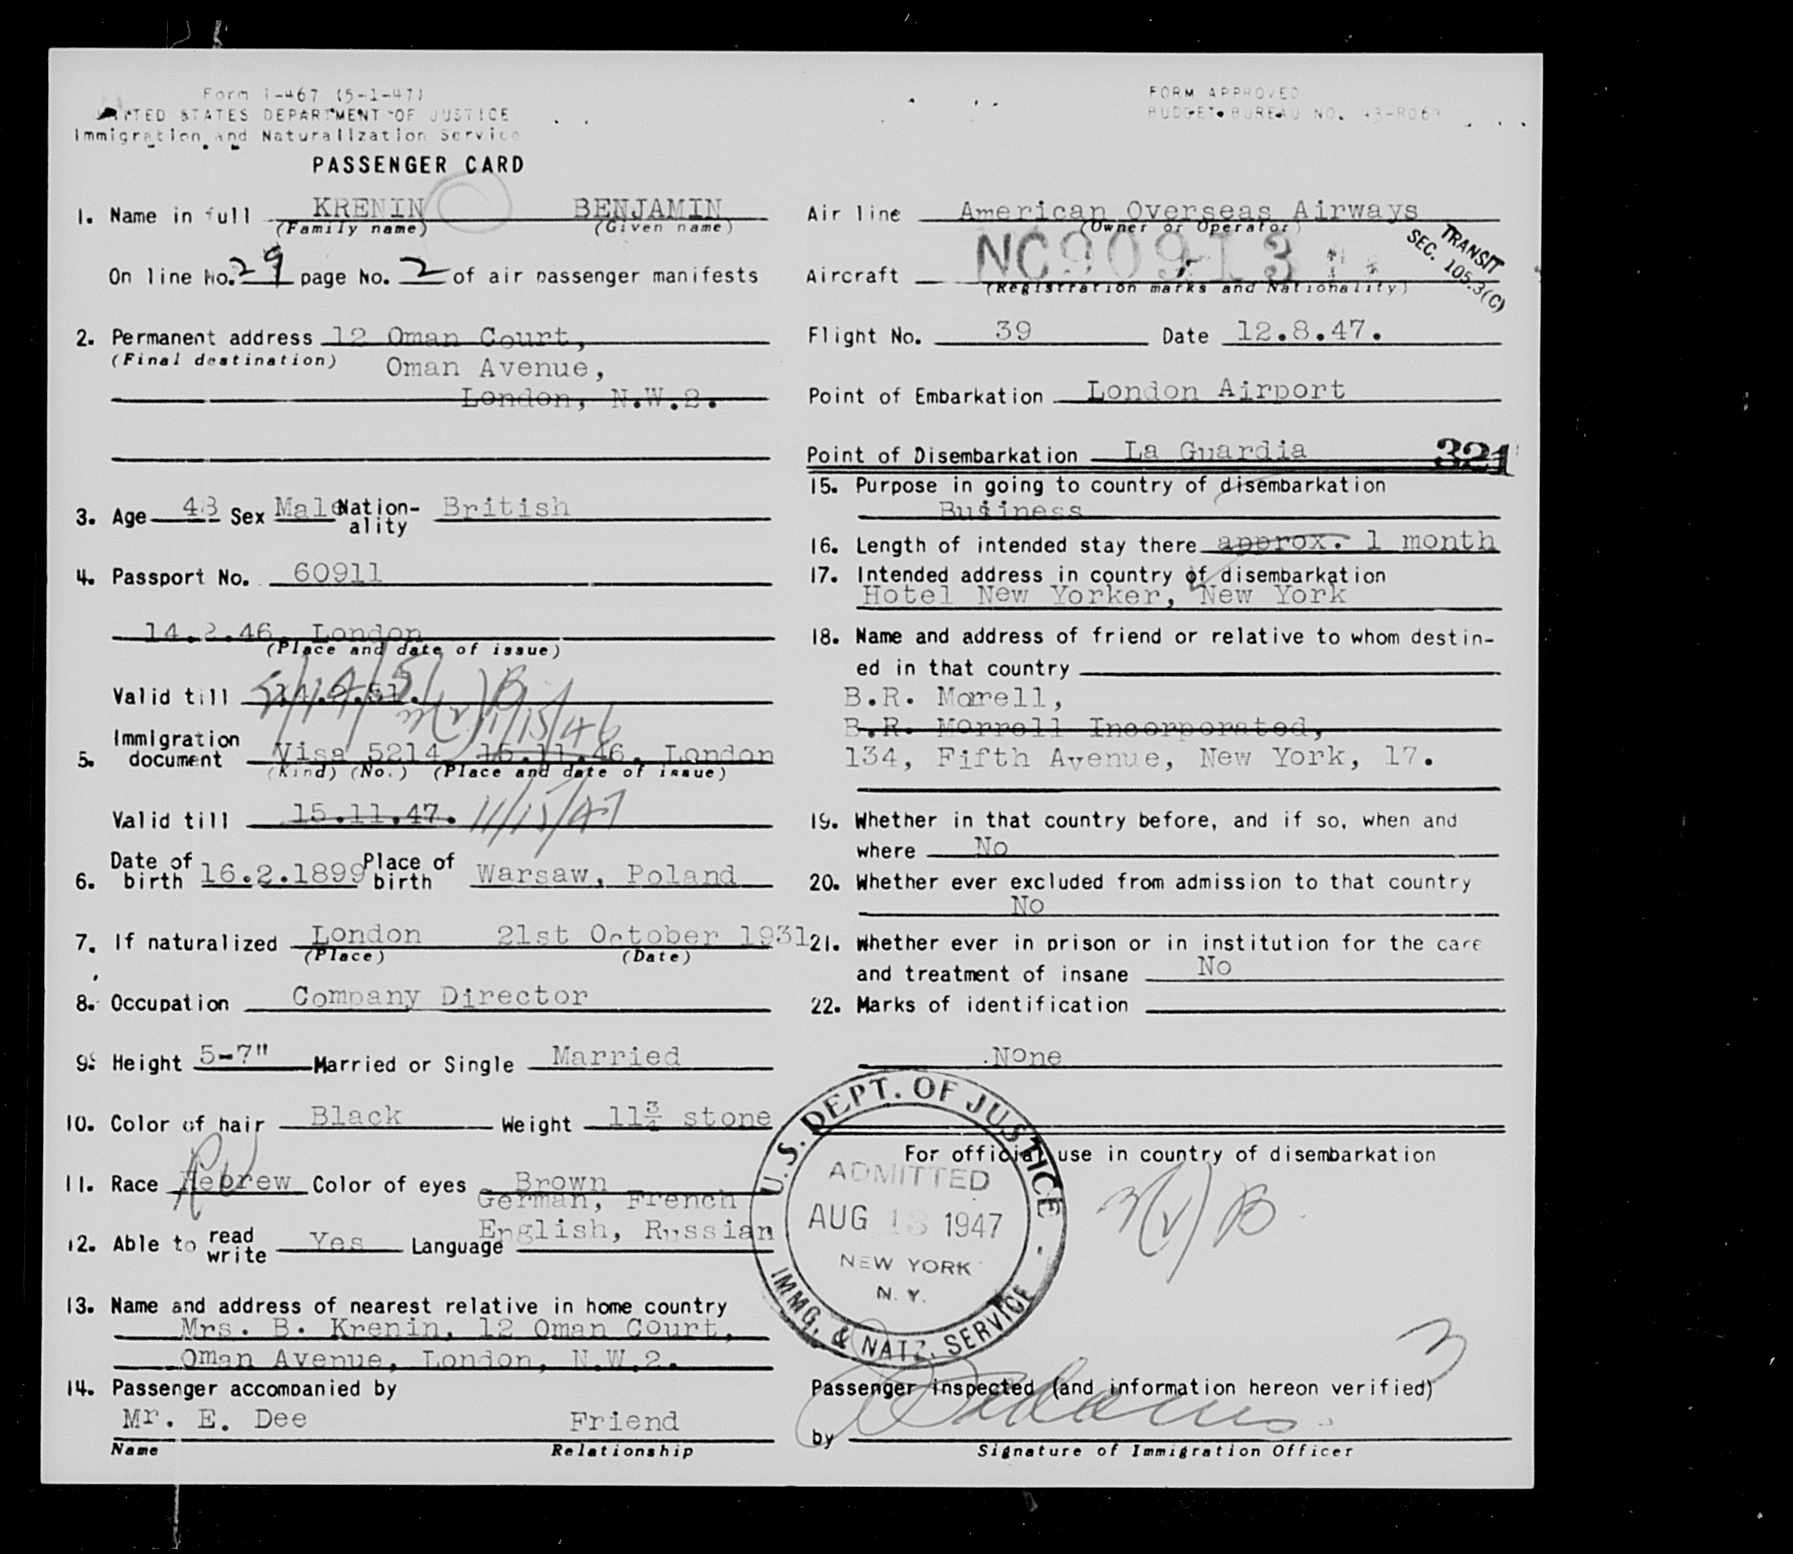 Form I-467 (5-1-47)
UNITED STATES DEPARTMENT OF JUSTICE
Immigration and Naturalization Service
PASSENGER CARD
FORM APPROVED
BUDGET BUREAU NO. 43-R069
1. Name in full KRENIN BENJAMIN
(Family name) (Given name)
On line No. 29 page No. 2 of air passenger manifests
2. Permanent address 12 Oman Court,
(Final destination) Oman Avenue,
London, N.W.2.
3. Age 48 Sex Male Nation-ality British
4. Passport No. 60911
14.2.46, London
(Place and date of issue)
Valid till 14.2.51.
2/14/51 B
3(2) 11/15/46
5. Immigration document Visa 5214 15.11.46, London
(Kind) (No.) (Place and date of issue)
Valid till 15.11.47. 11/15/47
6. Date of birth 16.2.1899 Place of birth Warsaw, Poland
7. If naturalized London 21st October 1931
(Place) (Date)
8. Occupation Company Director
9. Height 5-7" Married or Single Married
10. Color of hair Black Weight 11¾ stone
11. Race Hebrew Color of eyes Brown
German, French
12. Able to read write Yes Language English, Russian
13. Name and address of nearest relative in home country
Mrs. B. Krenin, 12 Oman Court,
Oman Avenue, London, N.W.2.
14. Passenger accompanied by
Mr. E. Dee Friend
Name Relationship
Air line American Overseas Airways
(Owner or Operator)
TRANSIT
SEC. 105.3(C)
Aircraft NC90913
(Registration marks and Nationality)
Flight No. 39 Date 12.8.47.
Point of Embarkation London Airport
Point of Disembarkation La Guardia 321
15. Purpose in going to country of disembarkation
Business
16. Length of intended stay there approx. 1 month
17. Intended address in country of disembarkation
Hotel New Yorker, New York
18. Name and address of friend or relative to whom destin-
ed in that country
B.R. Morrell,
B.R. Morrell Incorporated,
134, Fifth Avenue, New York, 17.
19. Whether in that country before, and if so, when and
where No
20. Whether ever excluded from admission to that country
No
21. Whether ever in prison or in institution for the care
and treatment of insane No
22. Marks of identification
None
For official use in country of disembarkation
U.S. DEPT. OF JUSTICE
ADMITTED
AUG 13 1947
NEW YORK
N.Y.
IMMG. & NATZ. SERVICE
3(2) B
3
Passenger inspected (and information hereon verified)
by
Signature of Immigration Officer